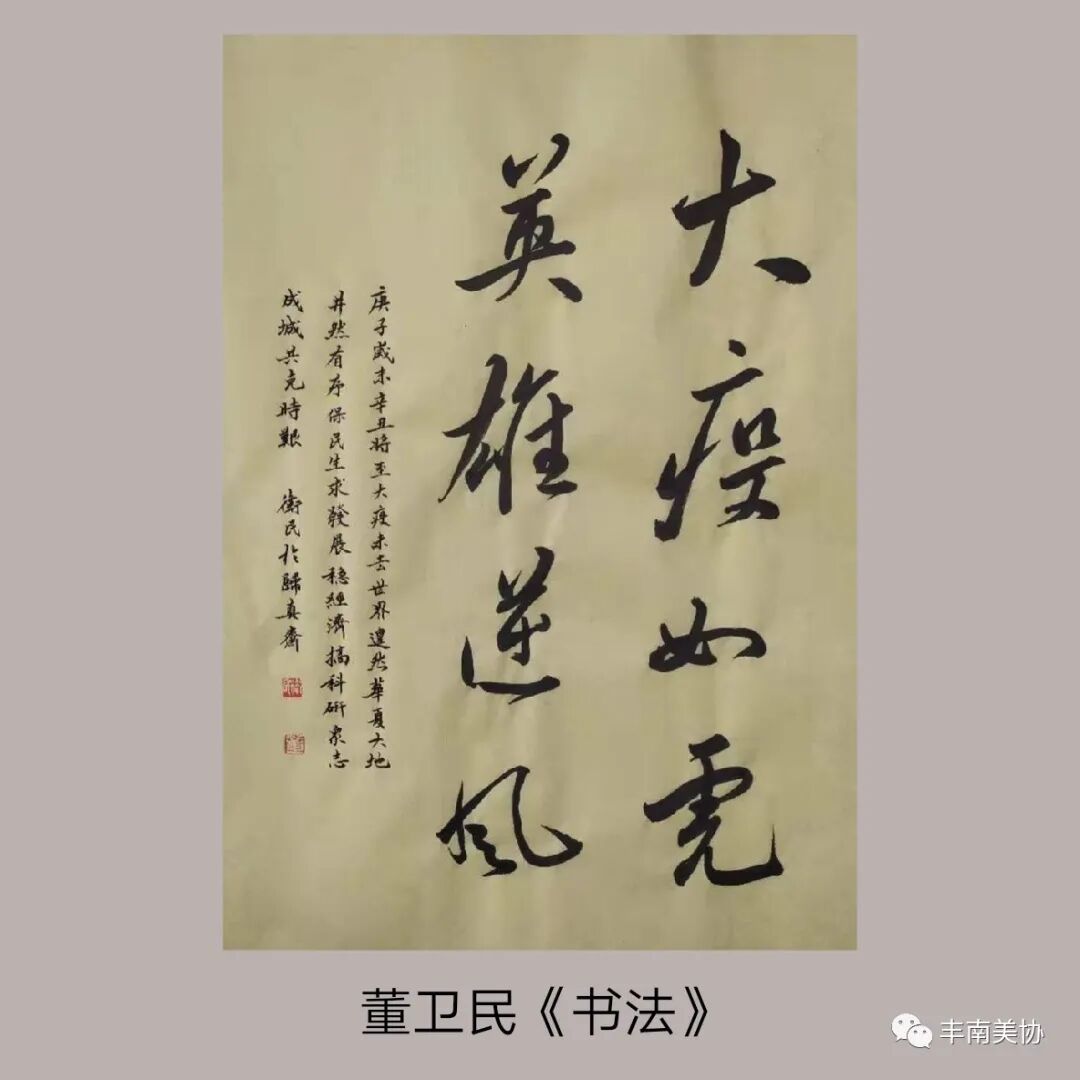 大疫如虎
英雄逆风
庚子岁末辛丑将至大疫未去世界遑然華夏大地
井然有序保民生求發展稳經濟搞科研衆志
成城共克時艱 衛民於歸真齋
董卫民《书法》
丰南美协